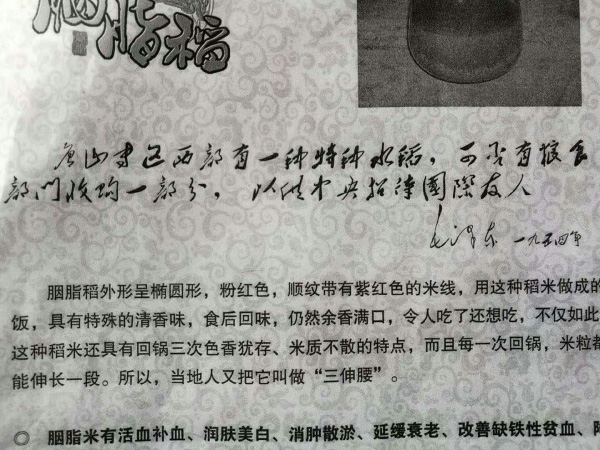 胭脂稻
唐山专区西部有一种特种水稻，可否有粮食
部门收购一部分，以供中央招待国际友人
毛泽东 一九五四年
胭脂稻外形呈椭圆形，粉红色，顺纹带有紫红色的米线，用这种稻米做成的
饭，具有特殊的清香味，食后回味，仍然余香满口，令人吃了还想吃，不仅如此
这种稻米还具有回锅三次色香犹存、米质不散的特点，而且每一次回锅，米粒都
能伸长一段。所以，当地人又把它叫做“三伸腰”。
◎ 胭脂米有活血补血、润肤美白、消肿散淤、延缓衰老、改善缺铁性贫血、